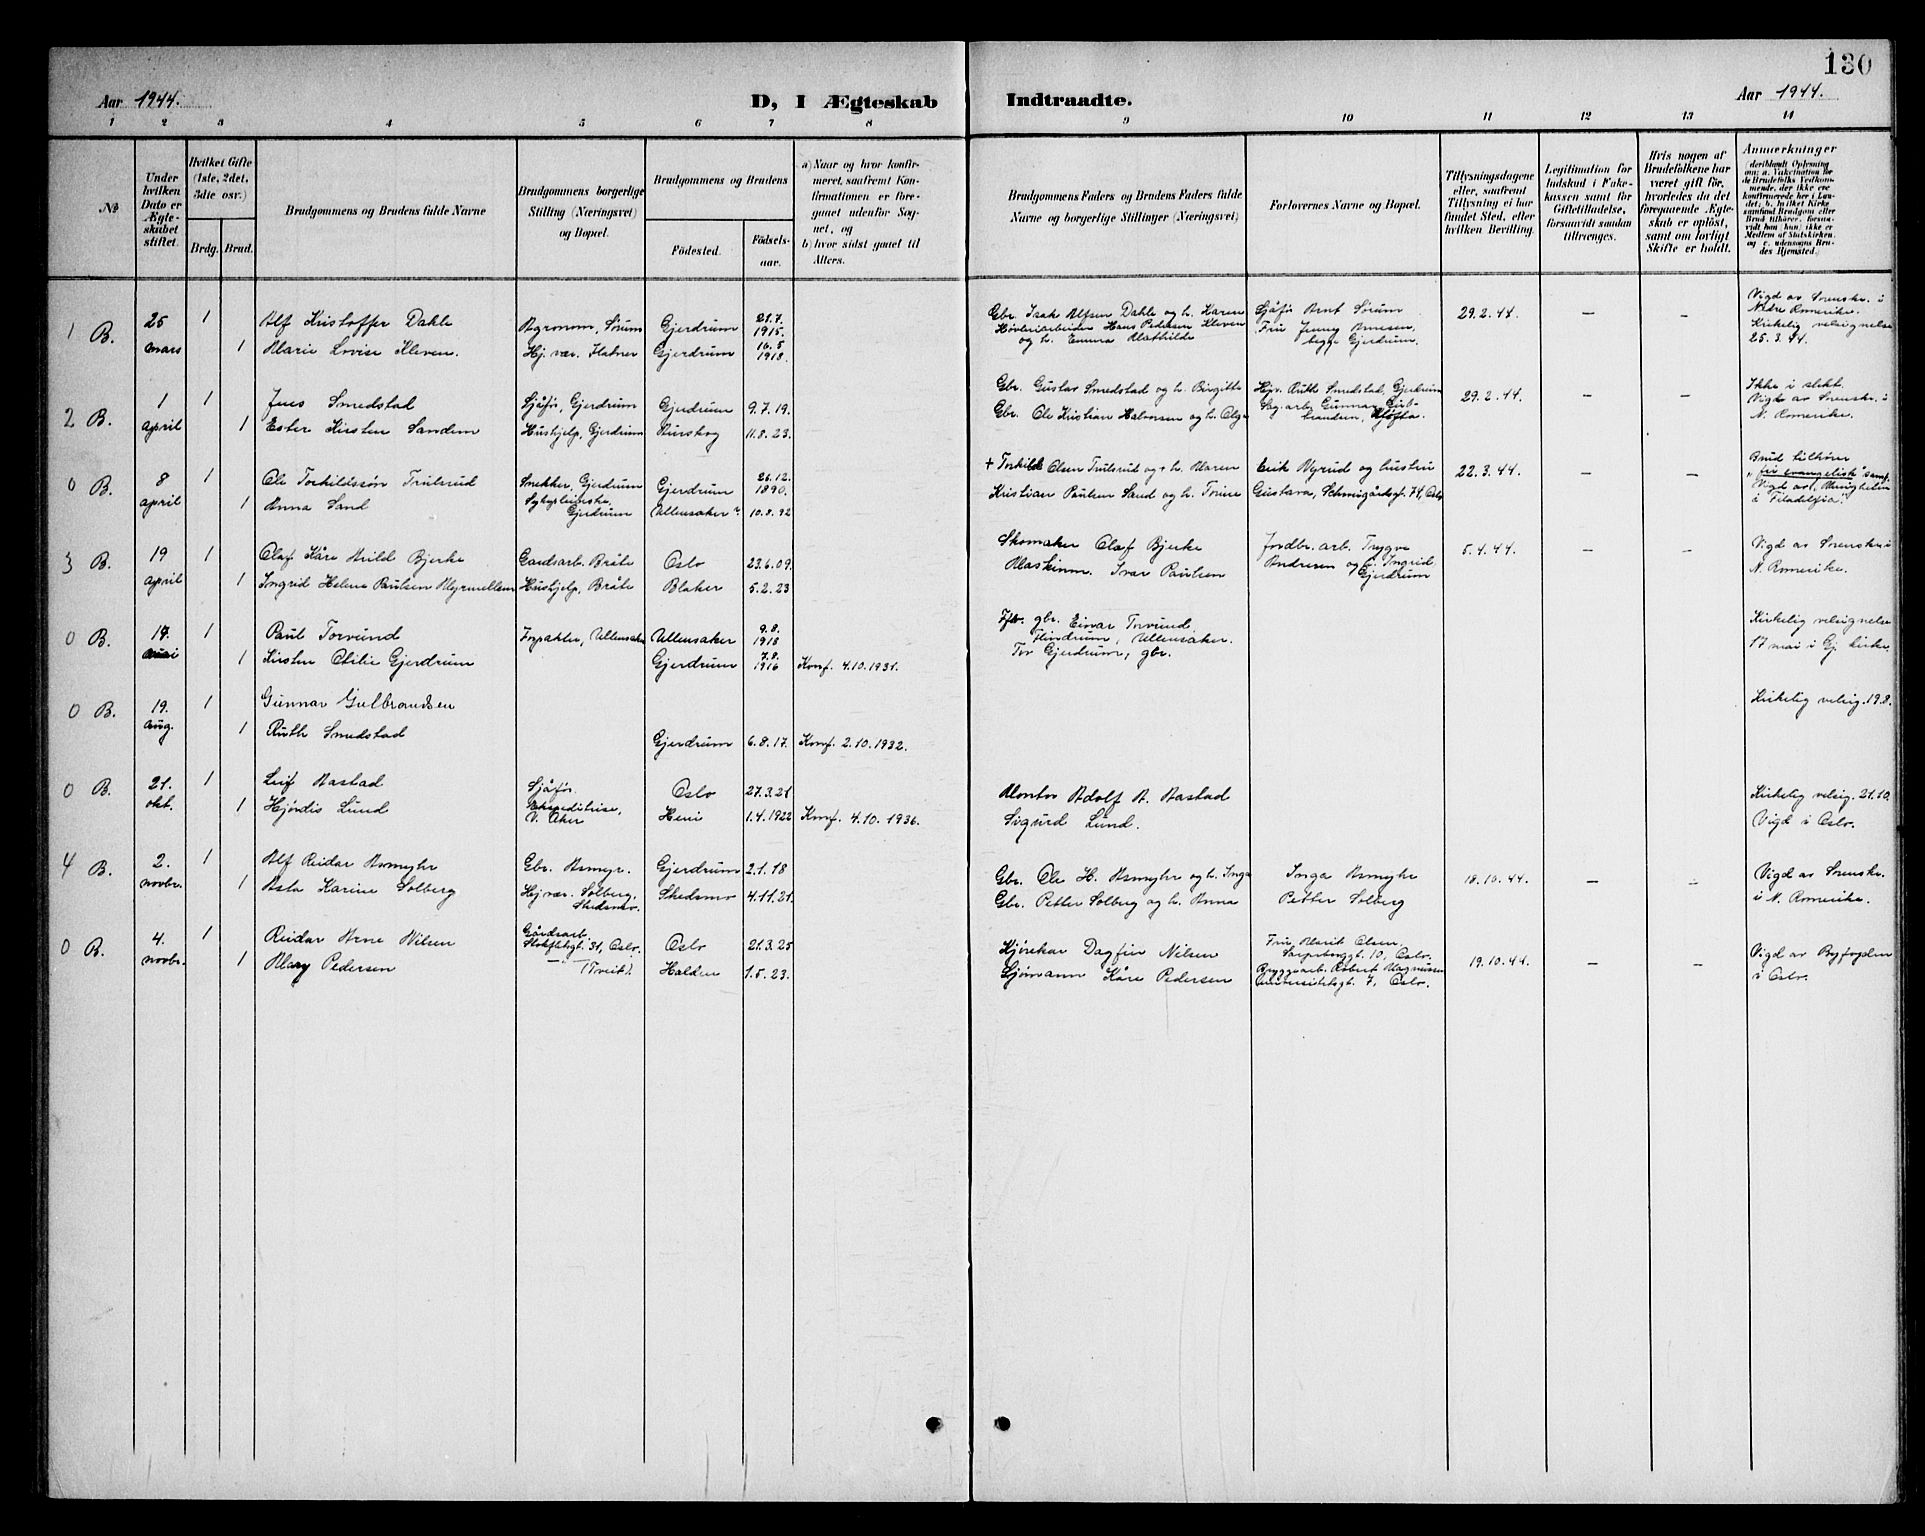 130
Aar 1944.
D, I Ægteskab Indtraadte.
Aar 1944.
1 2 3 4 5 6 7 8 9 10 11 12 13 14
№
Under hvilken Dato er Ægteskabet stiftet.
Hvilket Gifte (1ste, 2det, 3die osv.)
Brdg. Brud.
Brudgommens og Brudens fulde Navne
Brudgommens borgerlige Stilling (Næringsvei) og Bopæl.
Brudgommens og Brudens
Födested. Födselsaar.
a) Naar og hvor konfirmeret, saafremt Konfirmationen er foregaaet udenfor Sognet, og
b) hvor sidst gaaet til Alters.
Brudgommens Faders og Brudens Faders fulde Navne og borgerlige Stillinger (Næringsvei)
Forlovernes Navne og Bopæl.
Tillysningsdagene eller, saafremt Tillysning ei har fundet Sted, efter hvilken Bevilling.
Legitimation for Indskud i Enkekassen samt for Giftetilladelse, forsaavidt saadan tiltrænges.
Hvis nogen af Brudefolkene har været gift för, hvorledes da det foregaaende Ægteskab er oplöst, samt om lovligt Skifte er holdt.
Anmærkninger
(deriblandt Oplysning om: a. Vaksination for de Brudefolks Vedkommende, der ikke ere konfirmerede her i Landet; b. hvilket Kirkesamfund Brudgom eller Brud tilhører, forsaavidt han (hun) ikke er Medlem af Statskirken, og c. udensogns Brudes Hjemsted.)
1 B. 25 mars 1
Alf Kristoffer Dahle Agronom, Sørum Gjerdrum 21.7. 1915.
1 Marie Lovise Kleven. Hj. vær. Flatner Gjerdrum 16.5 1918.
Gbr. Isak Alfsen Dahle og h. Karen
Høvleriarbeider Hans Pedersen Kleven og h. Emma Mathilde
Sjåfør Arnt Sørum
Fru Jenny Arnesen, begge Gjerdrum.
29.2.44. — —
Vigd av Sorenskr. i Nedre Romerike. Kirkelig velsignelse 25.3.44.
2 B. 1 april 1
Jens Smedstad Sjåfør, Gjerdrum Gjerdrum 9.7.19.
1 Ester Kirsten Sandem Hushjelp, Gjerdrum Aurskog 11.8.23.
Gbr. Gustav Smedstad og h. Birgitte
Gbr. Ole Kristian Halvorsen og h. Olga
Hjv. Ruth Smedstad, Gjerdrum
Sag.arb. Gunnar Gulbrandsen, Kløfta.
29.2.44. — —
Ikke i slekt.
Vigd av Sorenskr. i N. Romerike.
0 B. 8 april 1
Ole Torkildssøn Trulsrud Snekker, Gjerdrum Gjerdrum 26.12. 1890.
1 Anna Sand Sykepleierske, Gjerdrum Ullensaker 10.8.92
+ Torkild Olsen Trulsrud og + h. Maren
Kristian Paulsen Sand og h. Trine
Erik Myrud og hustru Gustava, Schweigårdsgt. 74, Oslo
22.3.44. — —
Brud tilhører "fri evangelisk" samf.
Vigd av "Menigheten i Filadelfia".
3 B. 19 april 1
Olaf Kåre Arild Bjerke Gardsarb. Bråte Oslo 23.6.09.
1 Ingrid Helene Paulsen Myrmellem Hushjelp, Bråte Blaker 5.2.23
Skomaker Olaf Bjerke
Maskinm. Ivar Paulsen
Jordbr. arb. Trygve Andresen og h. Ingrid Gjerdrum
5.4.44. — —
Vigd av Sorenskr. i N. Romerike.
0 B. 17. mai 1
Paul Torvund Forpakter, Ullensaker Ullensaker 9.8. 1918
1 Kirsten Otilie Gjerdrum Gjerdrum 7.8. 1916 Konf. 4.10.1931.
gbr. Einar Torvund, Flindrum, Ullensaker.
Tor Gjerdrum, gbr.
Kirkelig velsignelse 17 mai i Gj. kirke.
0 B. 19. aug. 1
Gunnar Gulbrandsen
1 Ruth Smedstad Gjerdrum 6.8.17. Konf. 2.10.1932.
Kirkelig velsig. 19.8.
0 B. 21. okt. 1
Leif Aastad Sjåfør. Oslo 27.3.21
1 Hjørdis Lund Ekspeditrise, V. Aker Heni 1.4.1922 Konf. 4.10.1936.
Montør Adolf A. Aastad
Sigurd Lund.
Kirkelig velsig. 21.10.
Vigd i Oslo.
4 B. 2. novbr. 1
Alf Reidar Asmyhr Gbr. Asmyr. Gjerdrum 2.1.18
1 Asta Karine Solberg Hj.vær. Solberg, Skedsmo. Skedsmo 4.11.21.
Gbr. Ole H. Asmyhr og h. Inga
Gbr. Petter Solberg og h. Anna
Inga Asmyhr
Petter Solberg
18.10.44. — —
Vigd av Sorenskr. i N. Romerike.
0 B. 4. novbr. 1
Reidar Arne Nilsen Gårdsarb. 31, Oslo. Oslo 21.3.25
1 Mary Pedersen — (Tveit). Halden 1.5.23.
Kjørekar Dagfin Nilsen
Sjømann Kåre Pedersen
Fru Marit Olsen, Sarpsborggt. 10, Oslo.
Bryggearb. Robert Magnussen Universitetsgt. 7, Oslo.
19.10.44. — —
Vigd av Byfogden i Oslo.